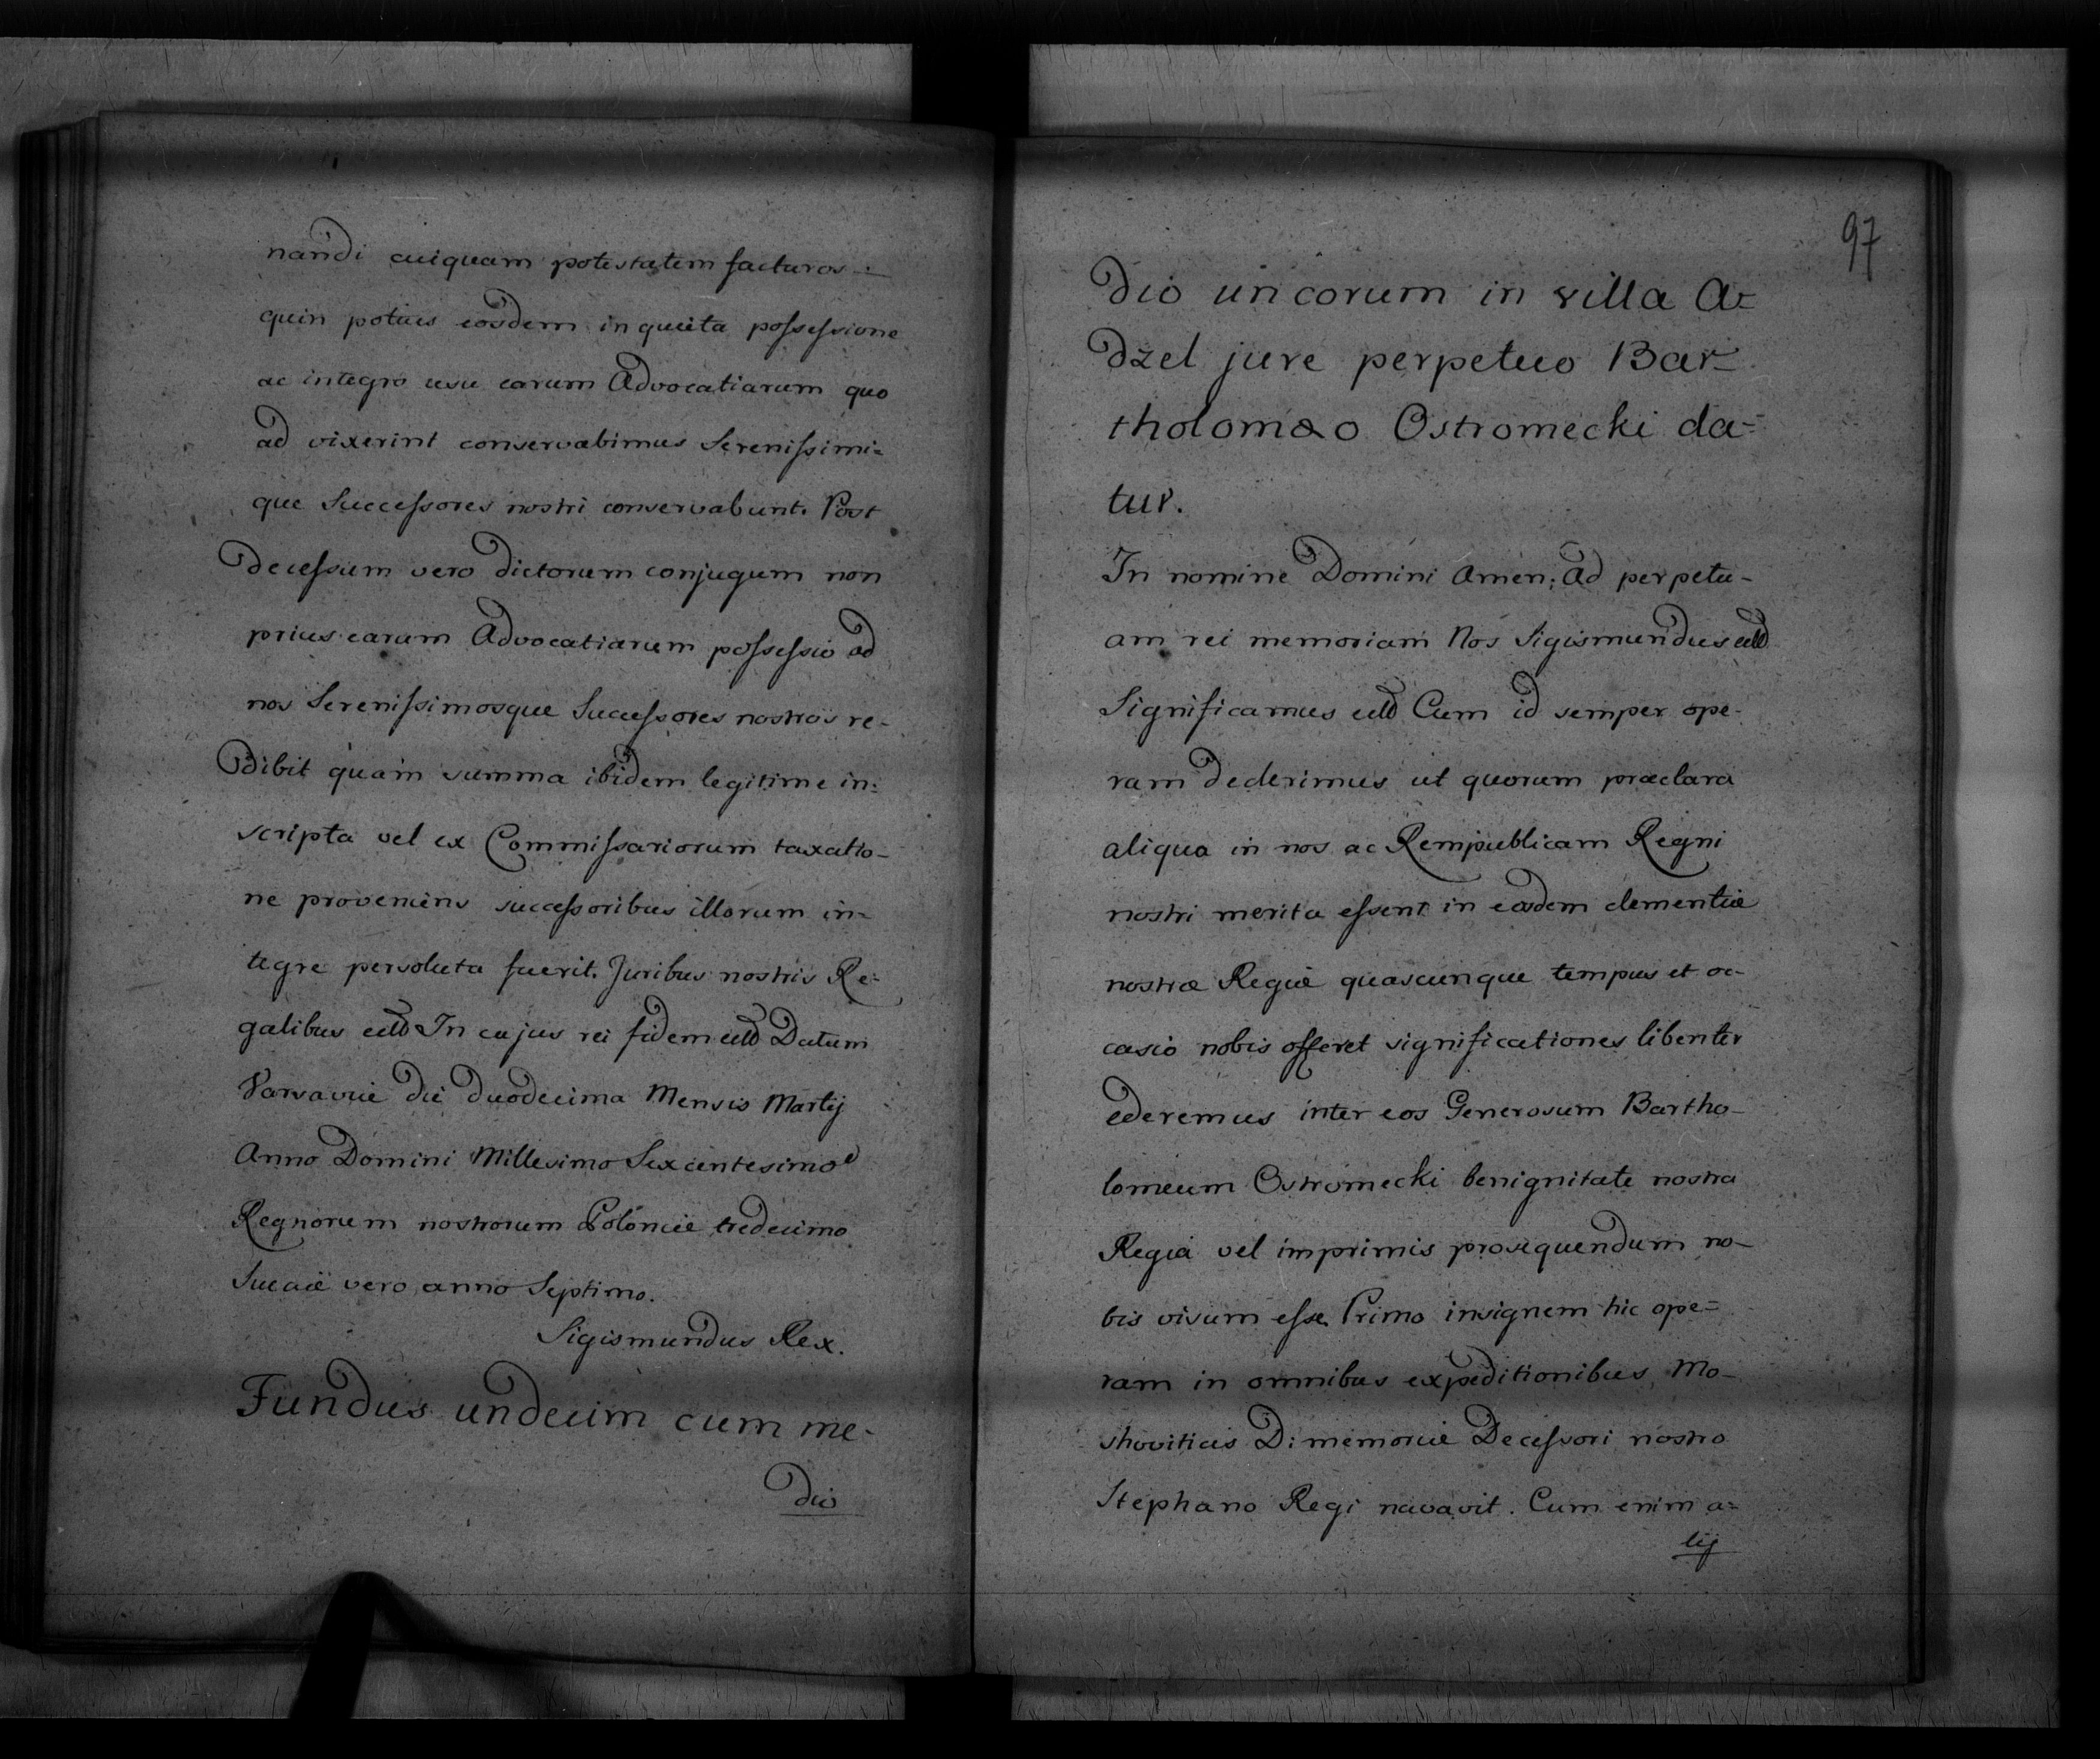 nandi cuiquam potestatem facturos
quin potius eosdem in quieta possessione
ac integro usu earum Advocatiarum quo
ad vixerint conservabimus Serenissimi=
que Successores nostri conservabunt. Post
decessum vero dictorum conjugum non
prius earum Advocatiarum possessio ad
nos Serenissimosque Successores nostros re-
dibit quam summa ibidem legitime in=
scripta vel ex Commissariorum taxatio-
ne proveniens successoribus illorum in=
tegre persoluta fuerit. Juribus nostris Re=
galibus etc In cujus rei fidem etc Datum
Varsaviæ die duodecima Mensis Martij
Anno Domini Millesimo Sexcentesimo
Regnorum nostrorum Poloniæ tredecimo
Sueciæ vero anno Septimo.
Sigismundus Rex.
Fundus undecim cum me-
dio
97
dio uncorum in villa A=
dzel jure perpetuo Bar=
tholomæo Ostromecki da=
tur.
In nomine Domini Amen: Ad perpetu-
am rei memoriam Nos Sigismundus etc
Significamus etc Cum id semper ope-
ram dederimus ut quorum præclara
aliqua in nos ac Rempublicam Regni
nostri merita essent in eosdem clementiæ
nostræ Regiæ quascunque tempus et oc-
casio nobis offeret significationes libenter
ederemus inter eos Generosum Bartho-
lomeum Ostromecki benignitate nostra
Regia vel imprimis prosequendum no-
bis visum esse. Primo insignem hic ope=
ram in omnibus expeditionibus Mo-
shoviticis D: memoriæ Decessori nostro
Stephano Regi navavit. Cum enim a=
lij